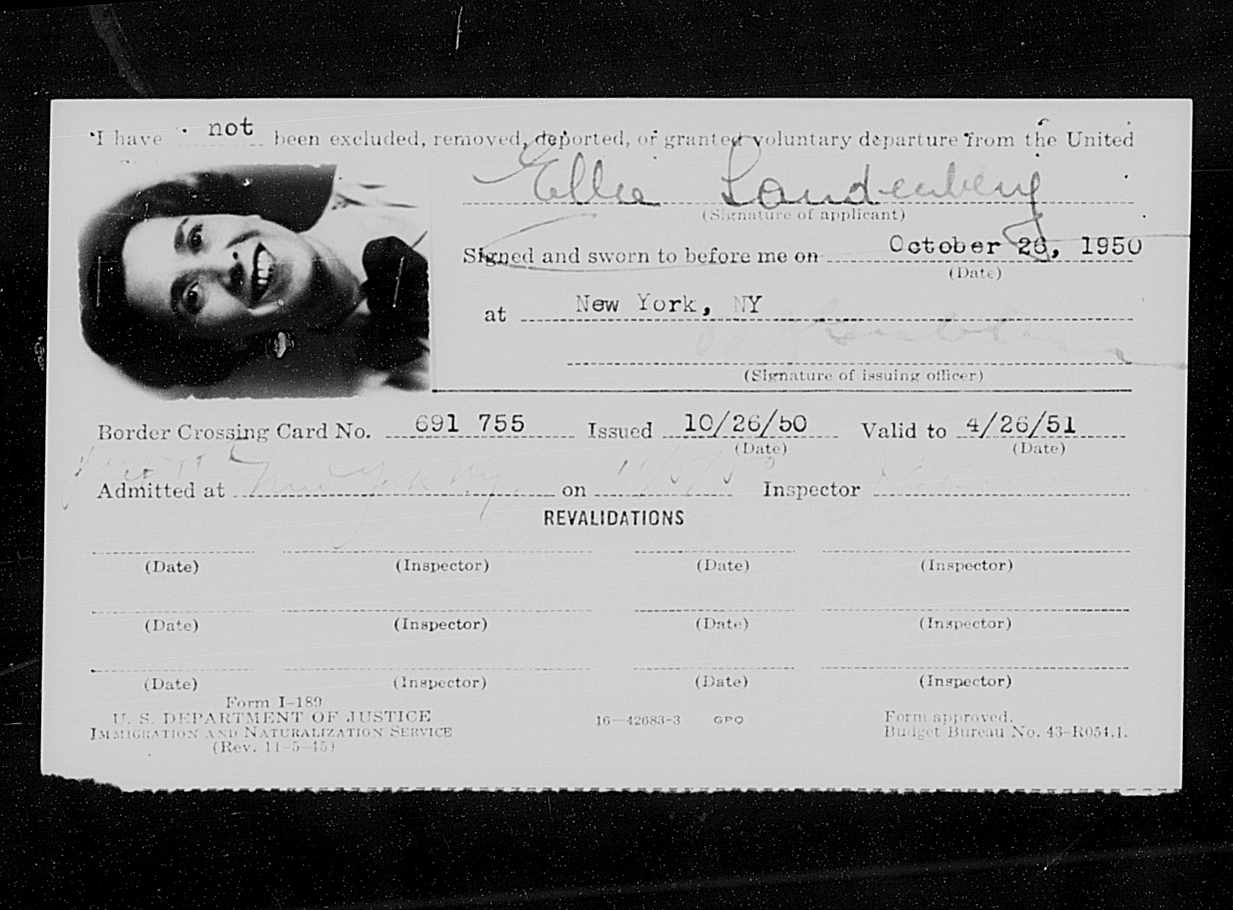 I have not been excluded, removed, deported, or granted voluntary departure from the United
Ellie Landenberg
(Signature of applicant)
Signed and sworn to before me on October 26, 1950
(Date)
at New York, NY
(Signature of issuing officer)
Border Crossing Card No. 691 755 Issued 10/26/50 Valid to 4/26/51
(Date) (Date)
Admitted at on Inspector
REVALIDATIONS
(Date) (Inspector) (Date) (Inspector)
(Date) (Inspector) (Date) (Inspector)
(Date) (Inspector) (Date) (Inspector)
Form I-189
U. S. DEPARTMENT OF JUSTICE 16—42683-3 GPO Form approved.
IMMIGRATION AND NATURALIZATION SERVICE Budget Bureau No. 43-R054.1.
(Rev. 11-5-45)